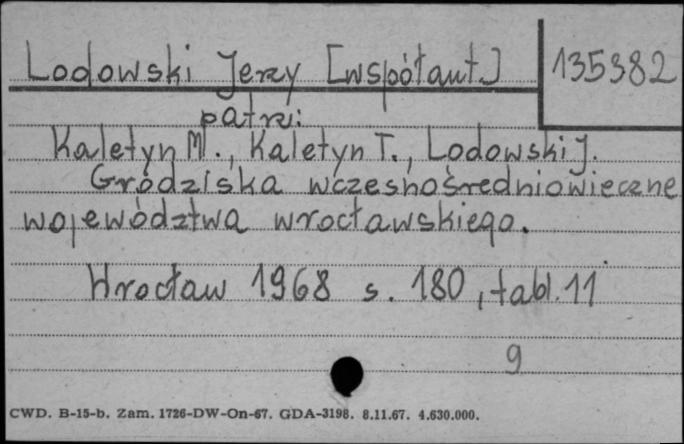 Lodowski Jerzy [współaut.] 135382
patrz:
Kaletyn M., Kaletyn T., Lodowski J.
Grodziska wczesnośredniowieczne
województwa wrocławskiego.
Wrocław 1968 s. 180, tabl. 11
9
CWD. B-15-b. Zam. 1726-DW-On-67. GDA-3198. 8.11.67. 4.630.000.